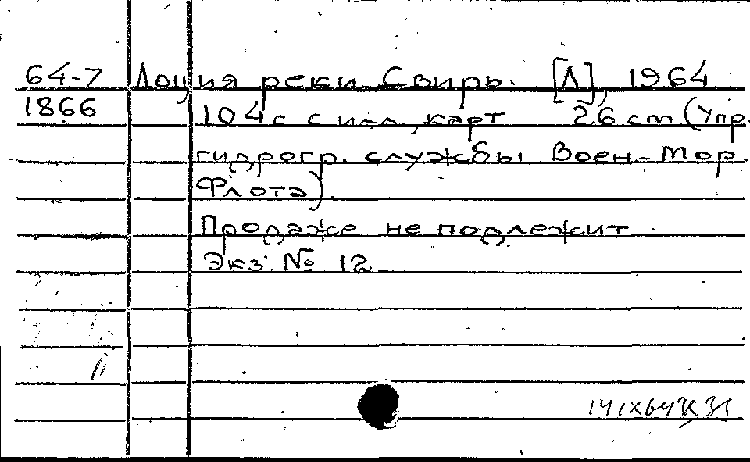 64-7 Лоция реки Свирь. [Л], 1964
1866 104 с с илл., карт 26 cm (Упр.
гидрогр. службы Воен-Мор.
Флота)
Продаже не подлежит
Экз. № 12